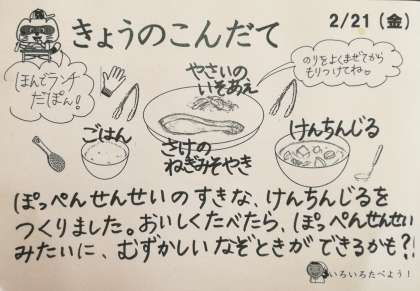 きょうのこんだて
2/21(金)
ほんでランチ
だぽん!
やさいの
いそあえ
のりをよくまぜてから
もりつけてね。
ごはん
さけの
ねぎみそやき
けんちんじる
ぽっぺんせんせいの すきな、けんちんじるを
つくりました。おいしくたべたら、ぽっぺんせんせい
みたいに、むずかしい なぞときが できるかも?!
いろいろたべよう!